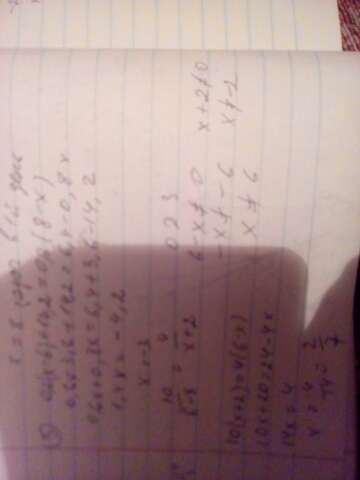 x = 8
5) 0,6(x-6)+14,2=0,8(8-x)
0,6x-3,6+14,2=6,4-0,8x
0,6x+0,8x=6,4+3,6-14,2
1,4x=-4,2
x=-3
10/(6-x) = 4/(x+2) ОДЗ
6-x≠0 x+2≠0
-x≠-6 x≠-2
x≠6
10(x+2)=4(6-x)
10x+20=24-4x
14x=4
x=4/14=2/7